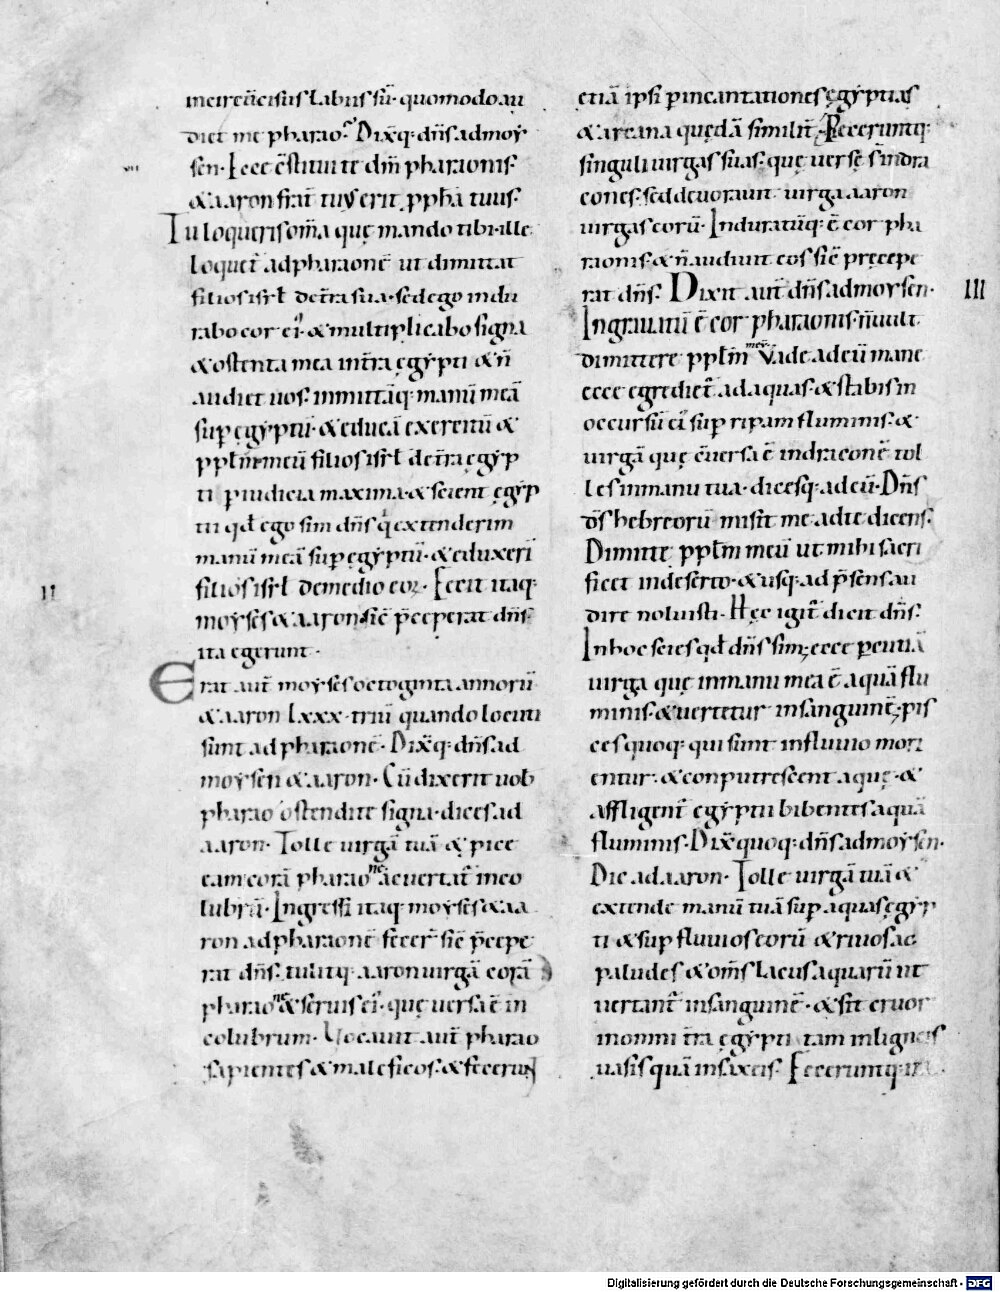 incircūcisus labiis sū· quomodo au
diet me pharao? Dixq· dn̄s ad moy
sen· Ecce c̄stitui te dm̄ pharaonis·
VII
& aaron frat̄ tuus erit ppha tuus·
Tu loqueris om̄a quę mando tibi· ille
loquet̄ ad pharaonē ut dimittat
filios isrł de tr̄a sua· sed ego indu
rabo cor ei᾽· & multiplicabo signa
& ostenta mea in tr̄a ęgypti & n̄
audiet uos· inmittāq· manū meā
sup ęgyptū· & educā exercitū &
pplm̄ meū filios isrł de tr̄a ęgyp
ti p iudicia maxima· & scient ęgyp
tii qd̄ ego sim dn̄s qi extenderim
manū meā sup ęgyptū· & eduxerī
filios isrł de medio eoꝝ· Fecit itaq·
II
moyses & aaron sic̄ p̄ceperat dn̄s·
ita egerunt·
Erat aut̄ moyses octoginta annorū
& aaron lxxx· triū quando locuti
sunt ad pharaonē· Dixq· dn̄s ad
moysen & aaron· Cū dixerit uob
pharao ostendite signa· dices ad
aaron· Tolle uirgā tuā & ꝓice
eam corā pharaone ac uertat̄ in co
lubrū· Ingressi itaq· moyses & aa
ron ad pharaonē fecer̄ sic̄ p̄cepe
rat dn̄s· tulitq· aaron uirgā corā
pharaone & seruis ei᾽· quę uersa ē in
colubrum· Uocauit aut̄ pharao
sapientes & maleficos· & fecerunt
etiā ipsi p incantationes ęgyptias
& arcana quędā similit̄· Proieceruntq·
singuli uirgas suas· quę uersę sn̄ in dra
cones· sed deuorauit uirga aaron
uirgas eorū· Induratūq· ē cor pha
raonis· & n̄ audiuit eos sic̄ pręcepe
rat dn̄s· Dixit aut̄ dn̄s ad moysen·
III
Ingrauatū ē cor pharaonis· n̄ uult
dimittere pplm̄ meū Vade ad eū mane
ecce egrediet̄ ad aquas· & stabis in
occursū ei᾽ sup ripam fluminis· &
uirgā quę c̄uersa ē in draconē tol
les in manu tua· dicesq· ad eū· Dn̄s
ds̄ hebreorū misit me ad te dicens·
Dimitte pplm̄ meū ut mihi sacri
ficet in deserto· & usq· ad p̄sens au
dire noluisti· Hęc igit̄ dicit dn̄s·
In hoc scies qd̄ dn̄s sim; ecce pcutiā
uirga quę in manu mea ē aquā flu
minis· & uertetur in sanguinē; pis
ces quoq· qui sunt in fluuio mori
entur· & conputrescent aquę· &
affligent̄ ęgyptii bibentes aquā
fluminis· Dix̄ quoq· dn̄s ad moysen·
Dic ad aaron· Tolle uirgā tuā &
extende manū tuā sup aquas ęgyp
ti & sup fluuios eorū & riuos ac
paludes & om̄s lacus aquarū ut
uertant̄ in sanguinē· & sit cruor
in omni tr̄a ęgypti tam in ligneis
uasis quā in saxeis· Feceruntq· ita
Digitalisierung gefördert durch die Deutsche Forschungsgemeinschaft - DFG